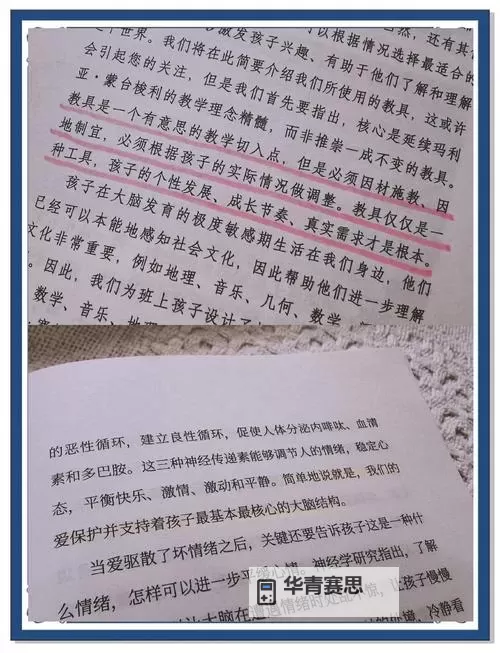 个世界。我们将在此简要介绍我们所使用的教具，这或许
激发孩子兴趣、有助于他们了解和理解
可以根据情况选择最适合的
然，还有其
会引起您的关注，但是我们首先要指出，核心是延续玛利
亚·蒙台梭利的教学理念精髓，而非推崇一成不变的教具。
教具是一个有意思的教学切入点，但是必须因材施教、因
地制宜，必须根据孩子的实际情况做调整。教具仅仅是一
种工具，孩子的个性发展、成长节奏、真实需求才是根本。
孩子在大脑发育的极度敏感期生活在我们身边，他们
已经可以本能地感知社会文化，因此帮助他们进一步理解
文化非常重要，例如地理、音乐、几何、数学、
。因此，我们为班上孩子设计了
数学、音乐、地理
的恶性循环，建立良性循环，促使人体分泌内啡呔、血清
素和多巴胺。这三种神经传递素能够调节人的情绪，稳定心
态，平衡快乐、激情、激动和平静。简单地说就是，我们的
爱保护并支持着孩子最基本最核心的大脑结构。
当爱驱散了坏情绪之后，关键还要告诉孩子这是一种什
么情绪，怎样可以进一步平缓心情。神经学研究指出，了解
遭遇情绪时处乱不惊，让孩子慢慢
冷静看
华青赛思